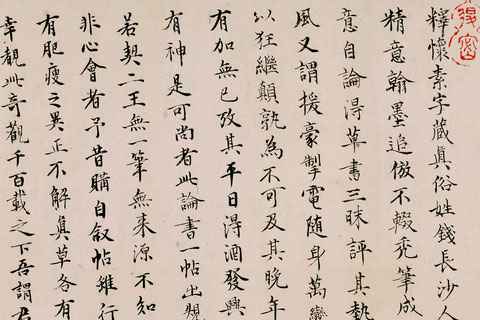 釋懷素字藏真俗姓錢長沙人
精意翰墨追倣不輟禿筆成
意自論得草書三昧評其勢
風又謂援豪掣電隨身萬變
以狂繼顛孰為不可及其晚年
有加無已攷其平日得酒發興
有神是可尚者此論書一帖出規
若契二王無一筆無來源不知
非心會者予昔購自敘帖雖行
有肥瘦之異正不解真草各有
幸觀此奇觀千百載之下吾謂